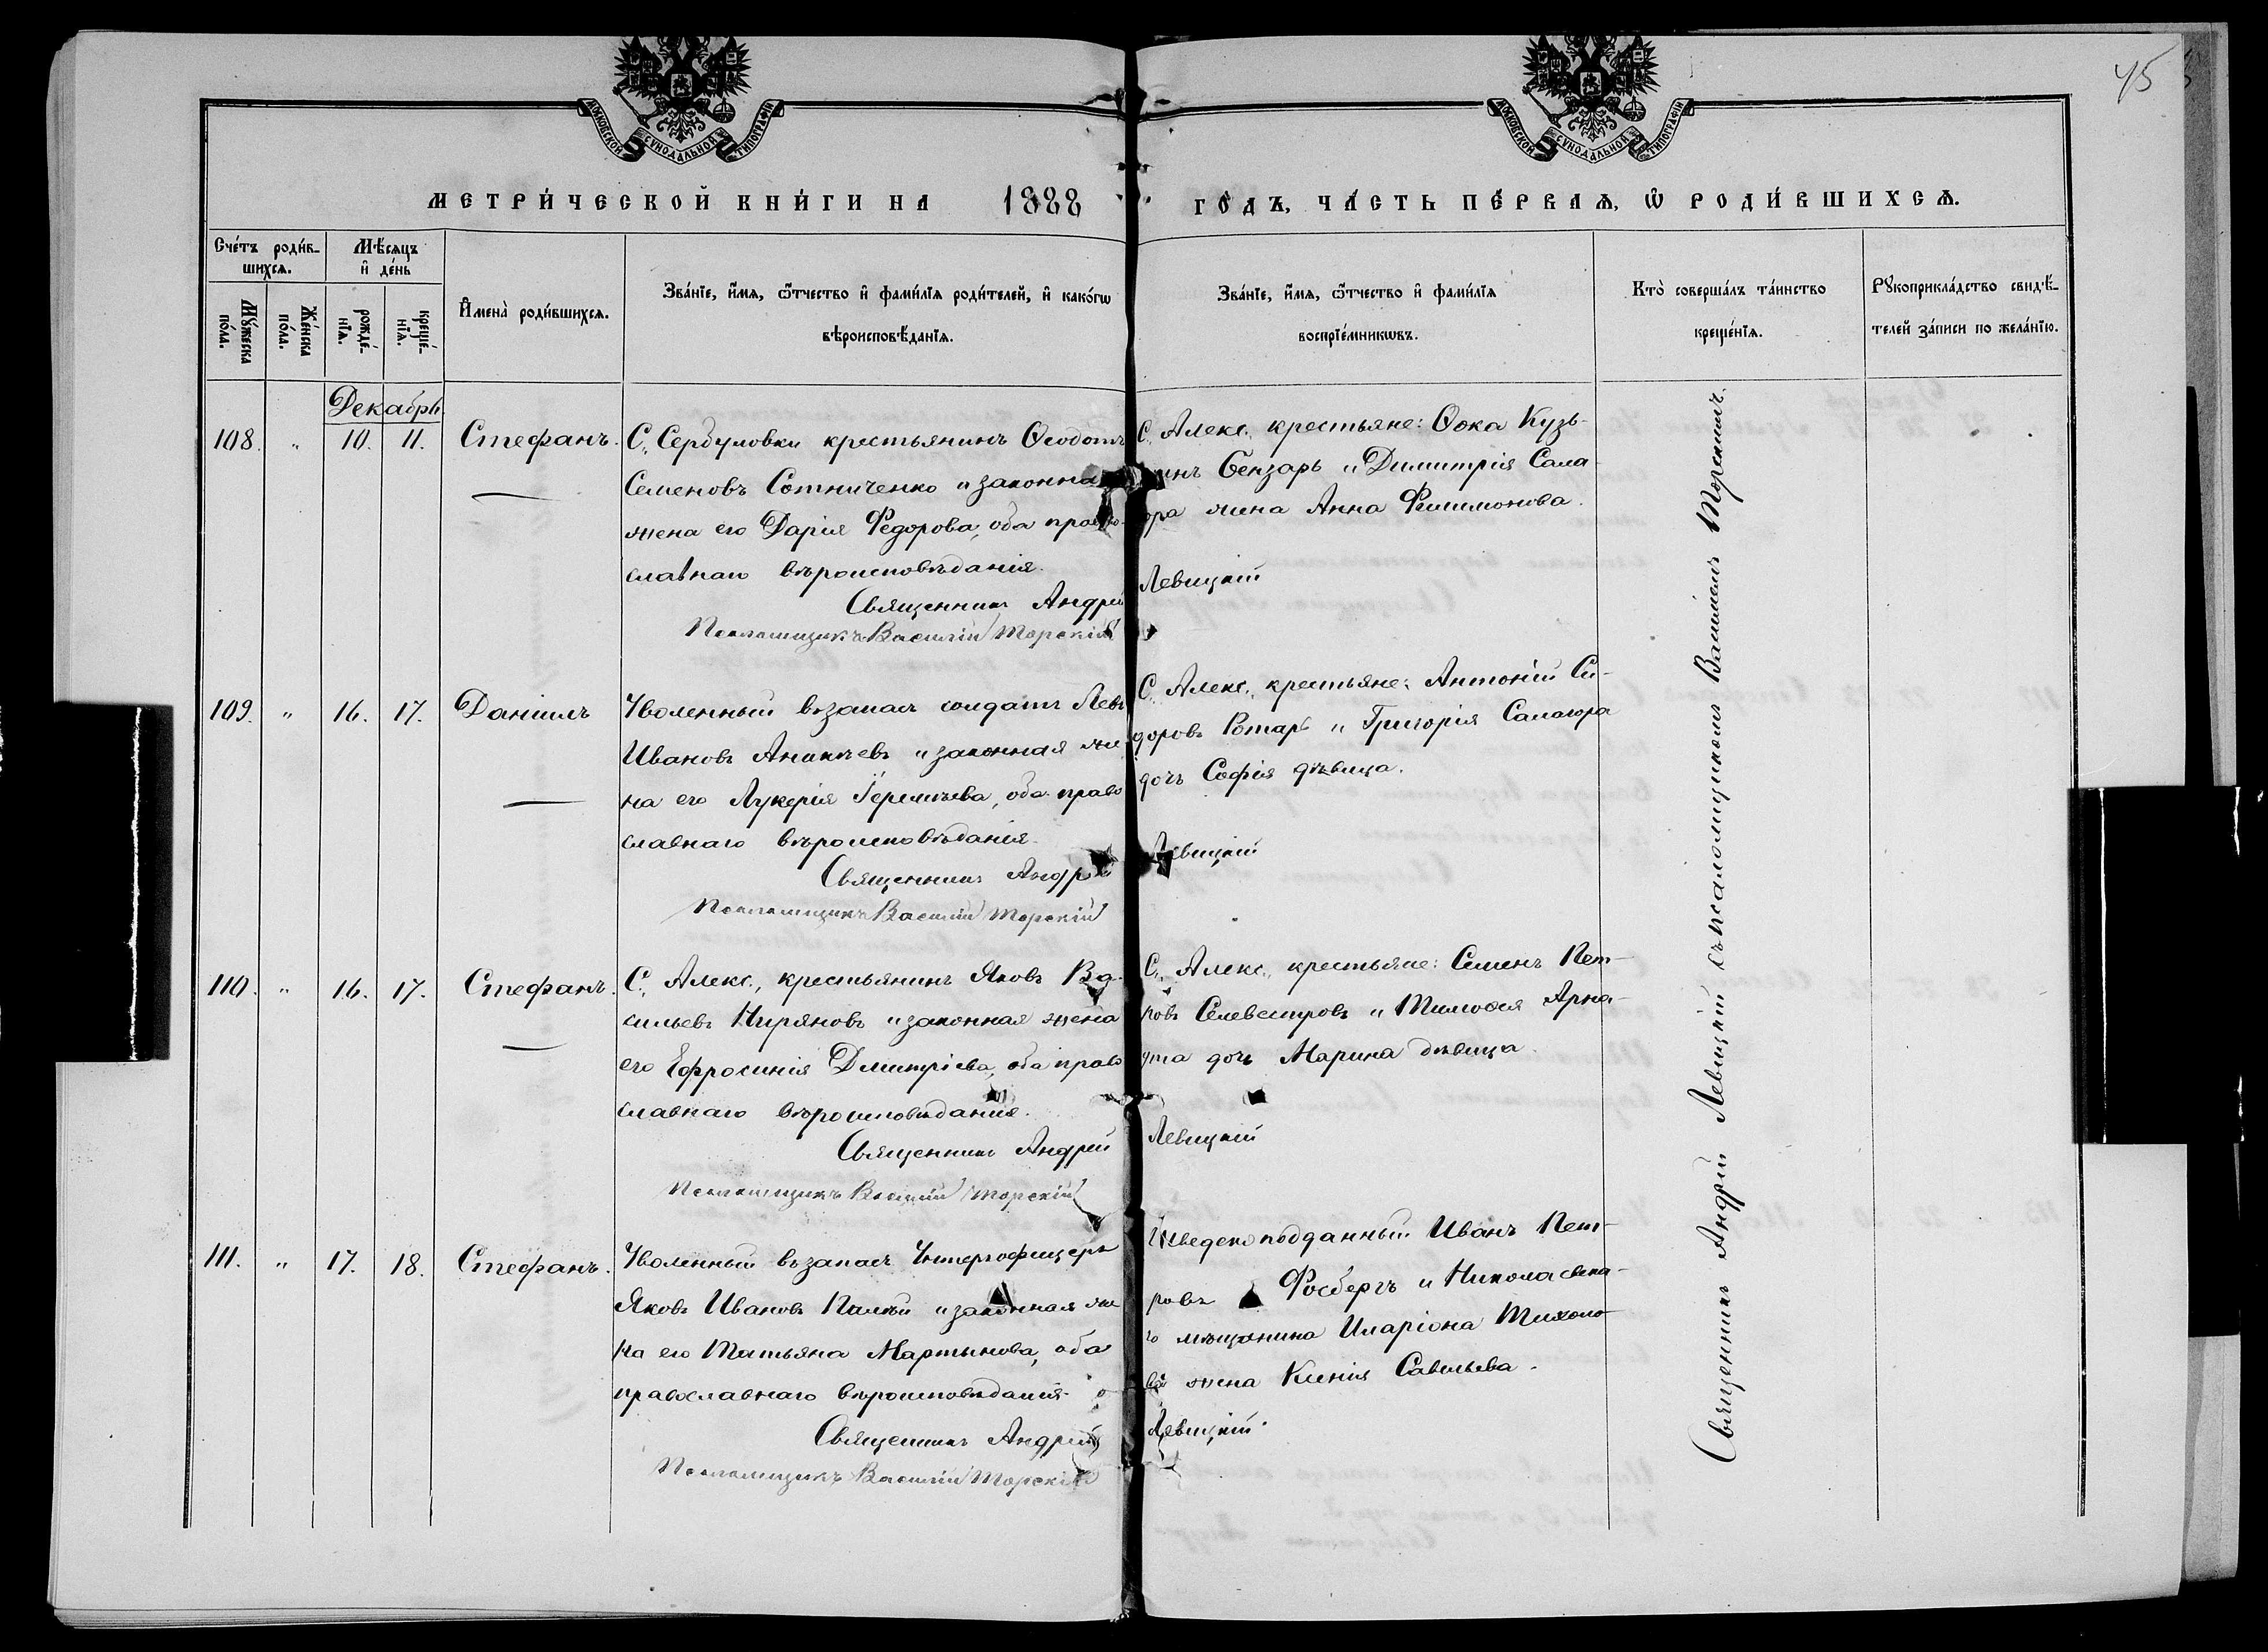 45
МОСКОВСКОЙ СѴНОДАЛЬНОЙ ТИПОГРАФІИ
МОСКОВСКОЙ СѴНОДАЛЬНОЙ ТИПОГРАФІИ
МЕТРИ́ЧЕСКОЙ КНИ́ГИ НА 1888 ГО́ДЪ, ЧА́СТЬ ПЕ́РВАѦ, Ѡ РОДИ́ВШИХСѦ.
Сче́тъ роди́в-
шихсѧ.
Мꙋ́жеска по́ла.
Же́нска по́ла.
Мѣ́сѧцъ
и҆ де́нь
рожде́-
нїѧ.
креще́-
нїѧ.
И҆мена̀ роди́вшихсѧ.
Зва́нїе, и҆́мѧ, ѻ҆́тчество и҆ фами́лїѧ роди́телей, и҆ како́гѡ
вѣроисповѣ́данїѧ.
Зва́нїе, и҆́мѧ, ѻ҆́тчество и҆ фами́лїѧ
воспрїе́мникѡвъ.
Кто̀ соверша́лъ та́инство
креще́нїѧ.
Рꙋкоприкла́дство свидѣ́-
телей за́писи по жела́нїю.
Декабрь
108. " 10. 11. Стефанъ.
С. Сердуловки крестьянинъ Ѳеодотъ
Семеновъ Сотниченко и законна
жена его Дарія Федорова, оба право-
славнаго вѣроисповѣданія.
Священникъ Андрей Левицкій
Псаломщикъ Василій Торскій
С. Алекс. крестьяне: Ѳока Кузь-
инъ Бензарь и Димитрія Сала-
ора жена Анна Филимонова.
109. " 16. 17. Даніилъ
Уволенный въ запасъ солдатъ Левъ
Ивановъ Аникѣевъ и законная же-
на его Лукерія Іеремѣева, оба право
славнаго вѣроисповѣданія.
Священникъ Андрей Левицкій
Псаломщикъ Василій Торскій
С. Алекс. крестьяне: Антоній Си-
доровъ Ротарь и Григорія Саломора
дочь Софія дѣвица.
110. " 16. 17. Стефанъ.
С. Алекс., крестьянинъ Яковъ Ва-
сильевъ Киряновъ и законная жена
его Ефросинія Димитріева, оба право
славнаго вѣроисповѣданія.
Священникъ Андрей Левицкій
Псаломщикъ Василій Торскій
С. Алекс. крестьяне: Семенъ Пет-
ровъ Селевестровъ и Тимоѳея Арна-
ута дочь Марина дѣвица.
111. " 17. 18. Стефанъ.
Уволенный въ запасъ Унтерофицеръ
Яковъ Ивановъ Палѣй и законная же
на его Татьяна Мартынова, оба
православнаго вѣроисповѣданія
Священникъ Андрей Левицкій
Псаломщикъ Василій Торскій
Шведскоподданный Иванъ Пет-
ровъ Фосбергъ и Николаевска-
го мѣщанина Иларіона Тихоно-
ва жена Ксенія Савельева.
Священникъ Андрей Левицкій съ псаломщикомъ Василіемъ Торскимъ.